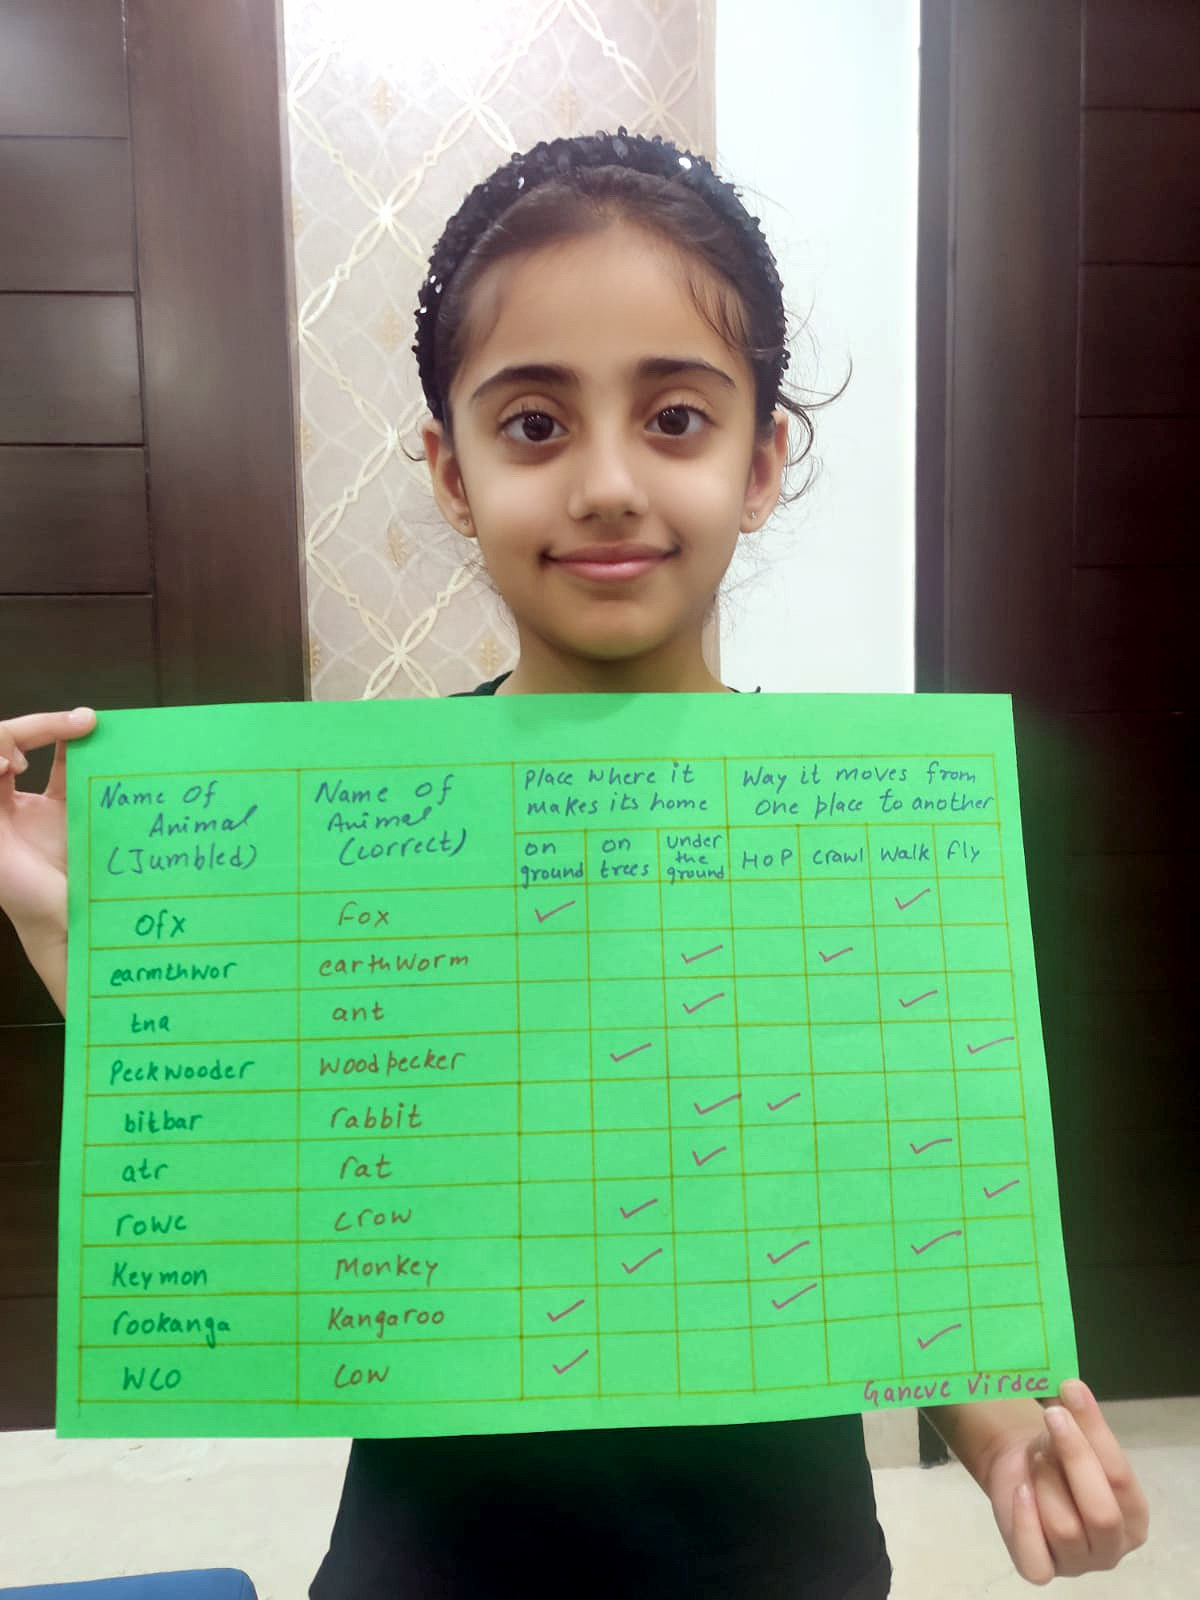 Name of Animal (Jumbled) | Name of Animal (correct) | Place where it makes its home | Way it moves from one place to another
on ground | on trees | under the ground | HOP | crawl | walk | fly
Ofx | Fox | ✓ | | | | | ✓ |
earmthwor | earthworm | | | ✓ | | ✓ | |
tna | ant | | | ✓ | | | ✓ |
Peckwooder | woodpecker | | ✓ | | | | | ✓
bitbar | rabbit | | | ✓ | ✓ | | |
atr | rat | | | ✓ | | | ✓ |
rowc | crow | | ✓ | | | | | ✓
Keymon | Monkey | | ✓ | | ✓ | | ✓ |
rookanga | Kangaroo | ✓ | | | ✓ | | |
wco | cow | ✓ | | | | | ✓ |
Ganeve Virdee